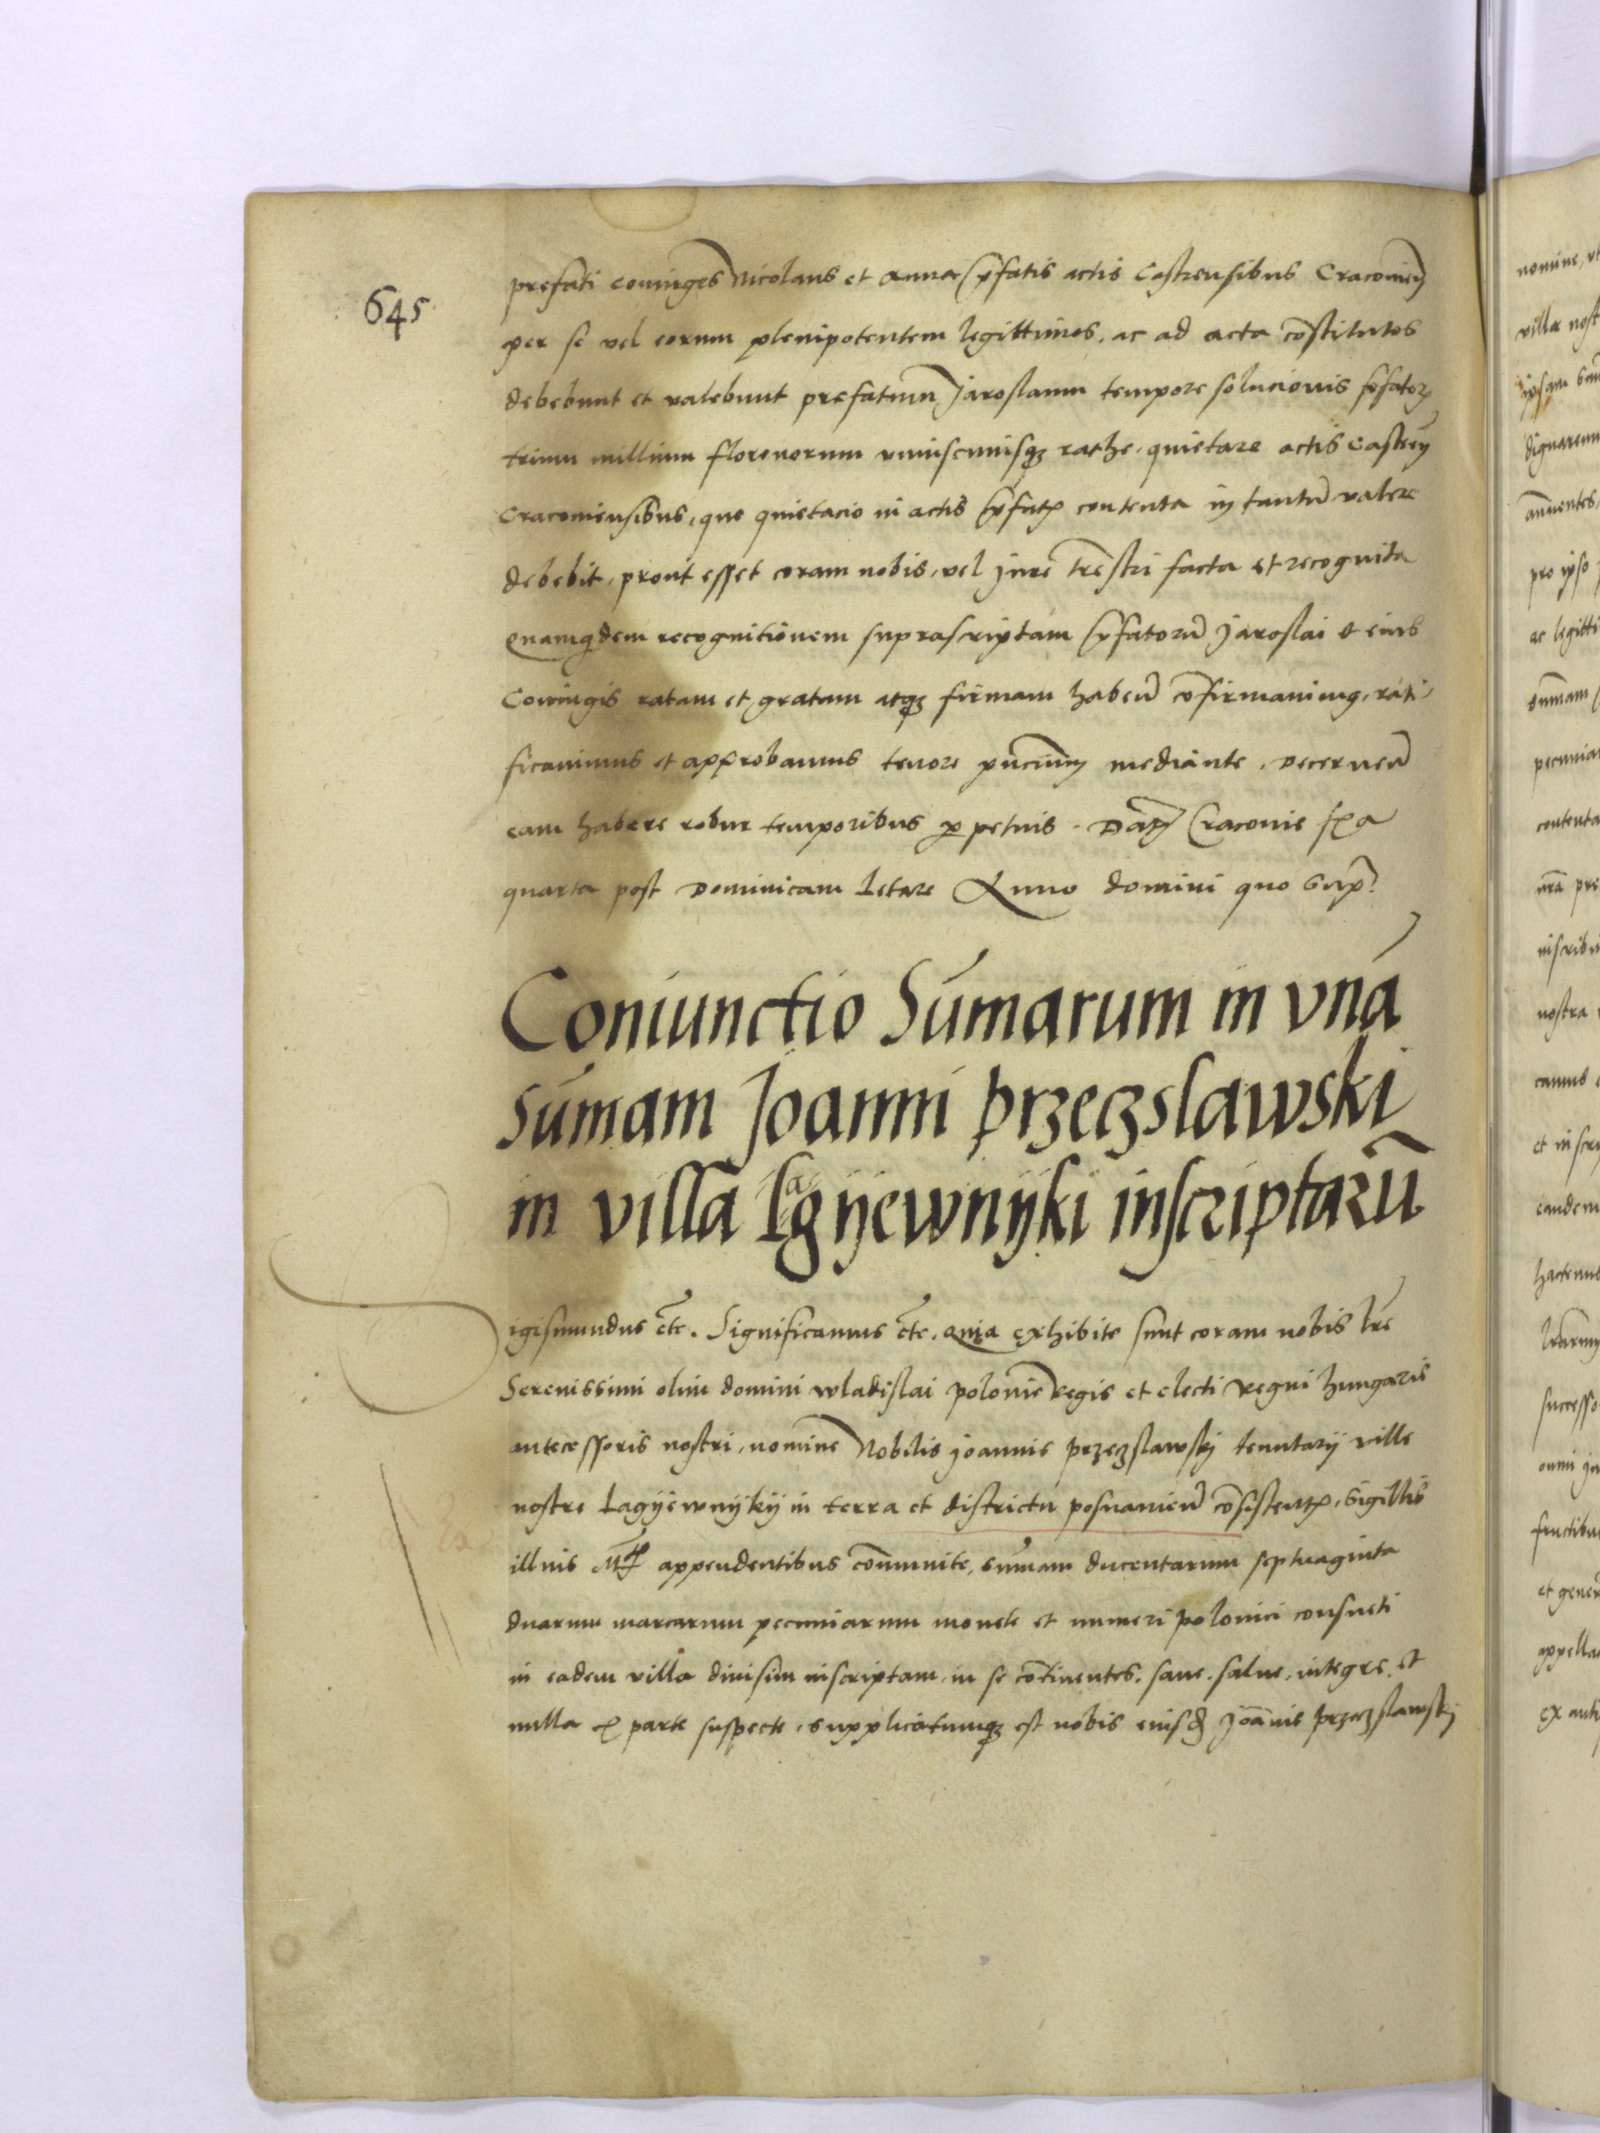 645
prefati coniuges Nicolaus et Anna prefatis actis Castrensibus Cracouien
per se vel eorum plenipotentem legittimos, ac ad acta constitutos
debebunt et valebunt prefatum Jaroslaum tempore solucionis prefator
trium millium florenorum vniuscuiusque rathe, quietare actis Castren
Cracouiensibus, que quietacio in actis prefat contenta in tantum valere
debebit, prout esset coram nobis, vel jure trestri facta et recognita
Quamquidem recognitionem suprascriptam prefatorum Jaroslai et eius
Coniugis ratam et gratam atque firmam haben confirmauimus, rati-
ficauimus et approbamus tenore pncium mediante. Decernen
eam habere robur temporibus perpetuis. Dat Cracouie fria
quarta post Dominicam Letare Anno domini quo supra.
Coniunctio Sumarum in vna
Sumam Joanni Przeczslawski
in villa Lagijewnijki inscriptaru
Sigismundus etc. Significamus etc. Quia exhibite sunt coram nobis lre
Serenissimi olim domini Wladislai polonie Regis et electi Regni hungarie
antecessoris nostri, nomine Nobilis Joannis Przeczslawski tenutarij ville
nostre Lagijewnijkij in terra et districtu posnanien consisten, Sigillis
illius appendentibus communite, Sumam ducentarum septuaginta
duarum marcarum pecuniarum monete et numeri polonici consueti
in eadem villa diuisim inscriptam, in se continentes, sane, salue, integre, et
nulla ex parte suspecte, supplicatumque est nobis eiusd Joannis Przeczslawski